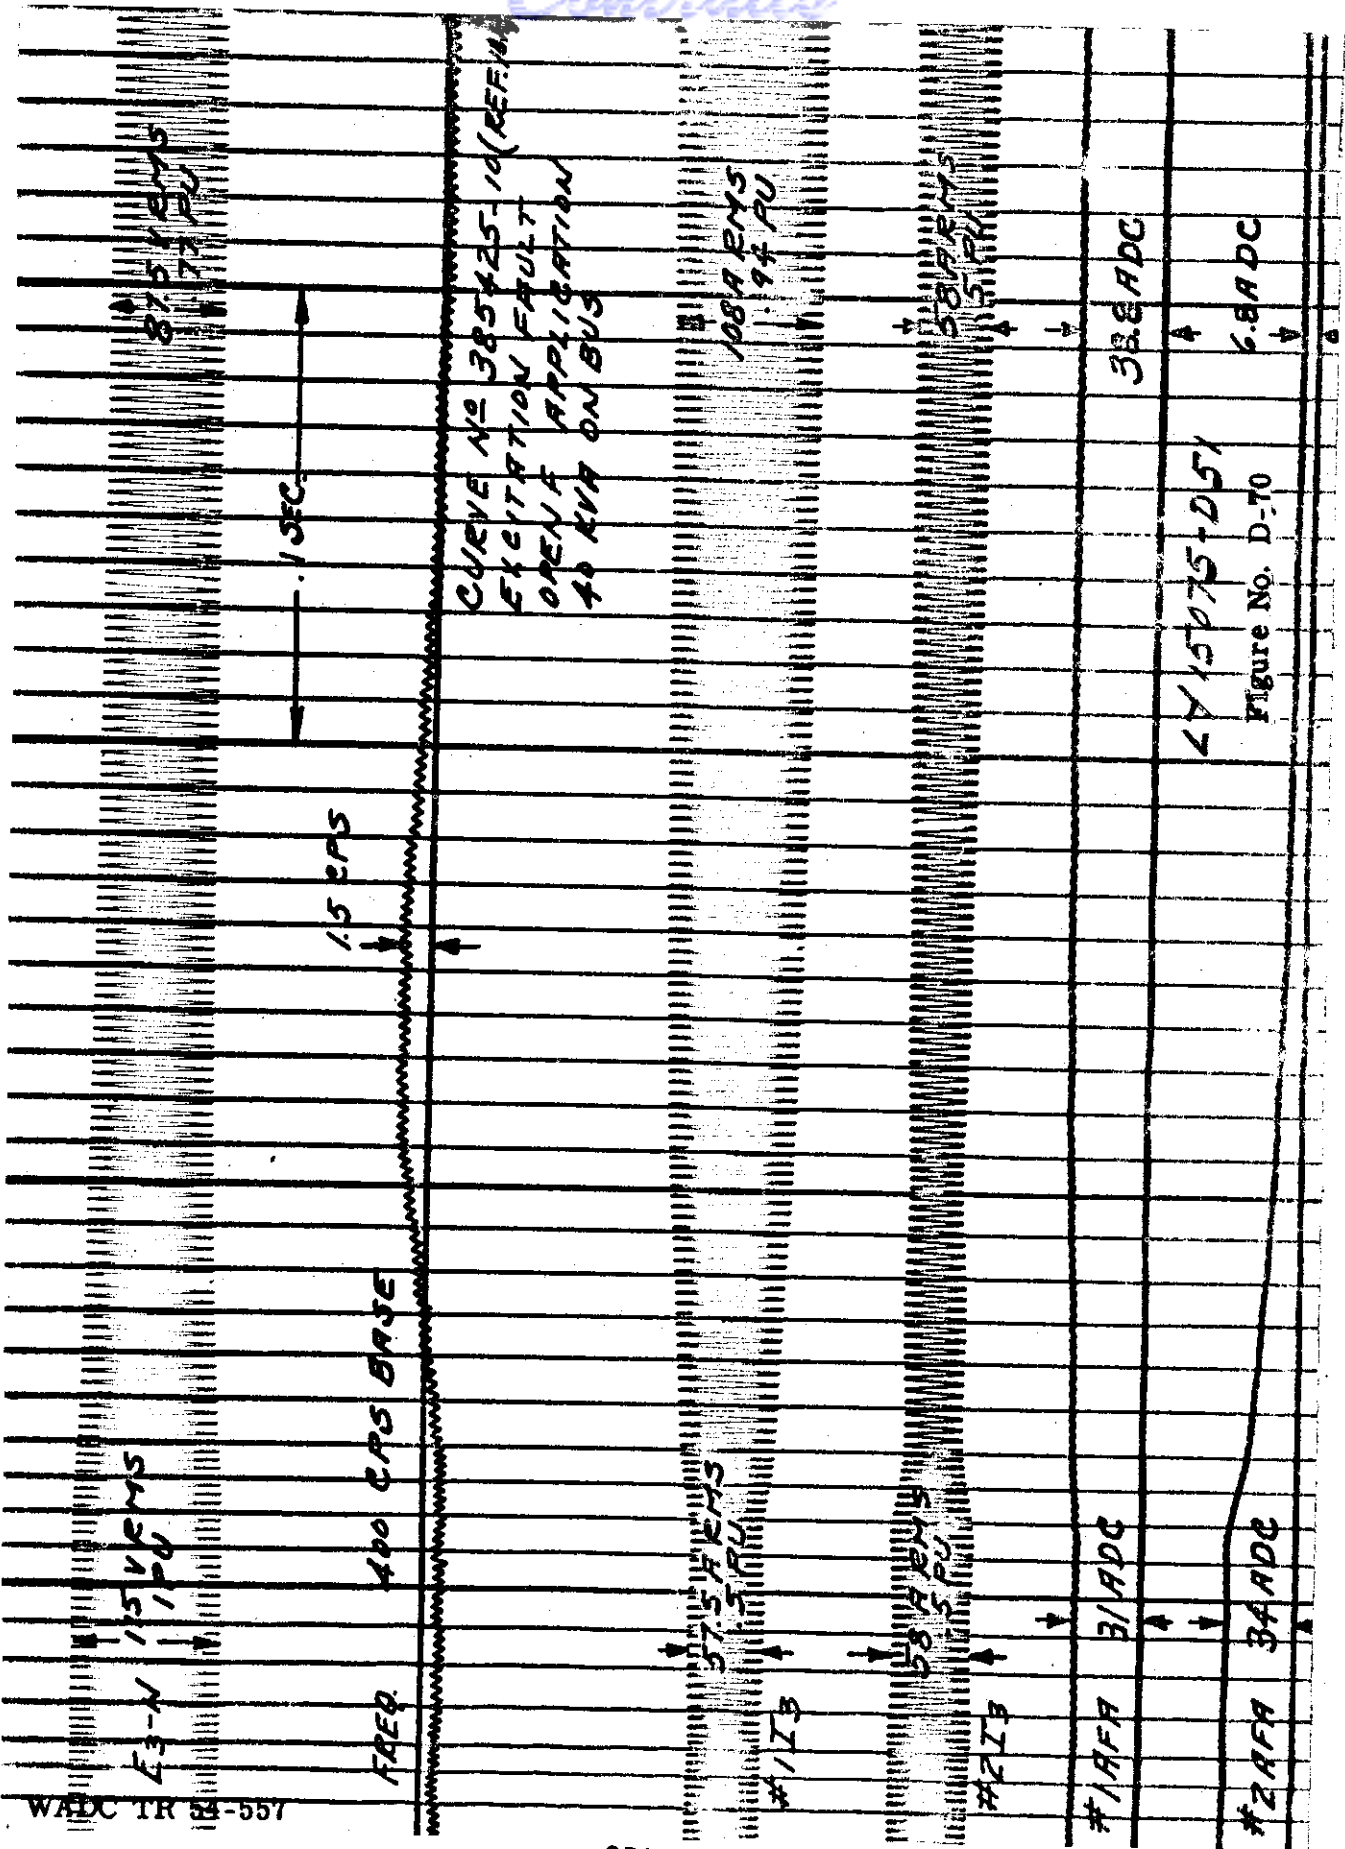 E3-N
115 V RMS
1 PU
87.5 V RMS
.77 PU
.1 SEC.
1.5 CPS
FREQ.
400 CPS BASE
CURVE Nº 385425-10 (REF.
EXCITATION FAULT
OPEN F APPLICATION
40 KVA ON BUS
#1 I3
57.5 A RMS
.5 PU
108 A RMS
.94 PU
#2 I3
58 A RMS
.5 PU
58 A RMS
.5 PU
#1 AFA
31 ADC
38.8 ADC
#2 AFA
34 ADC
6.8 ADC
Figure No. D-70
WADC TR 54-557